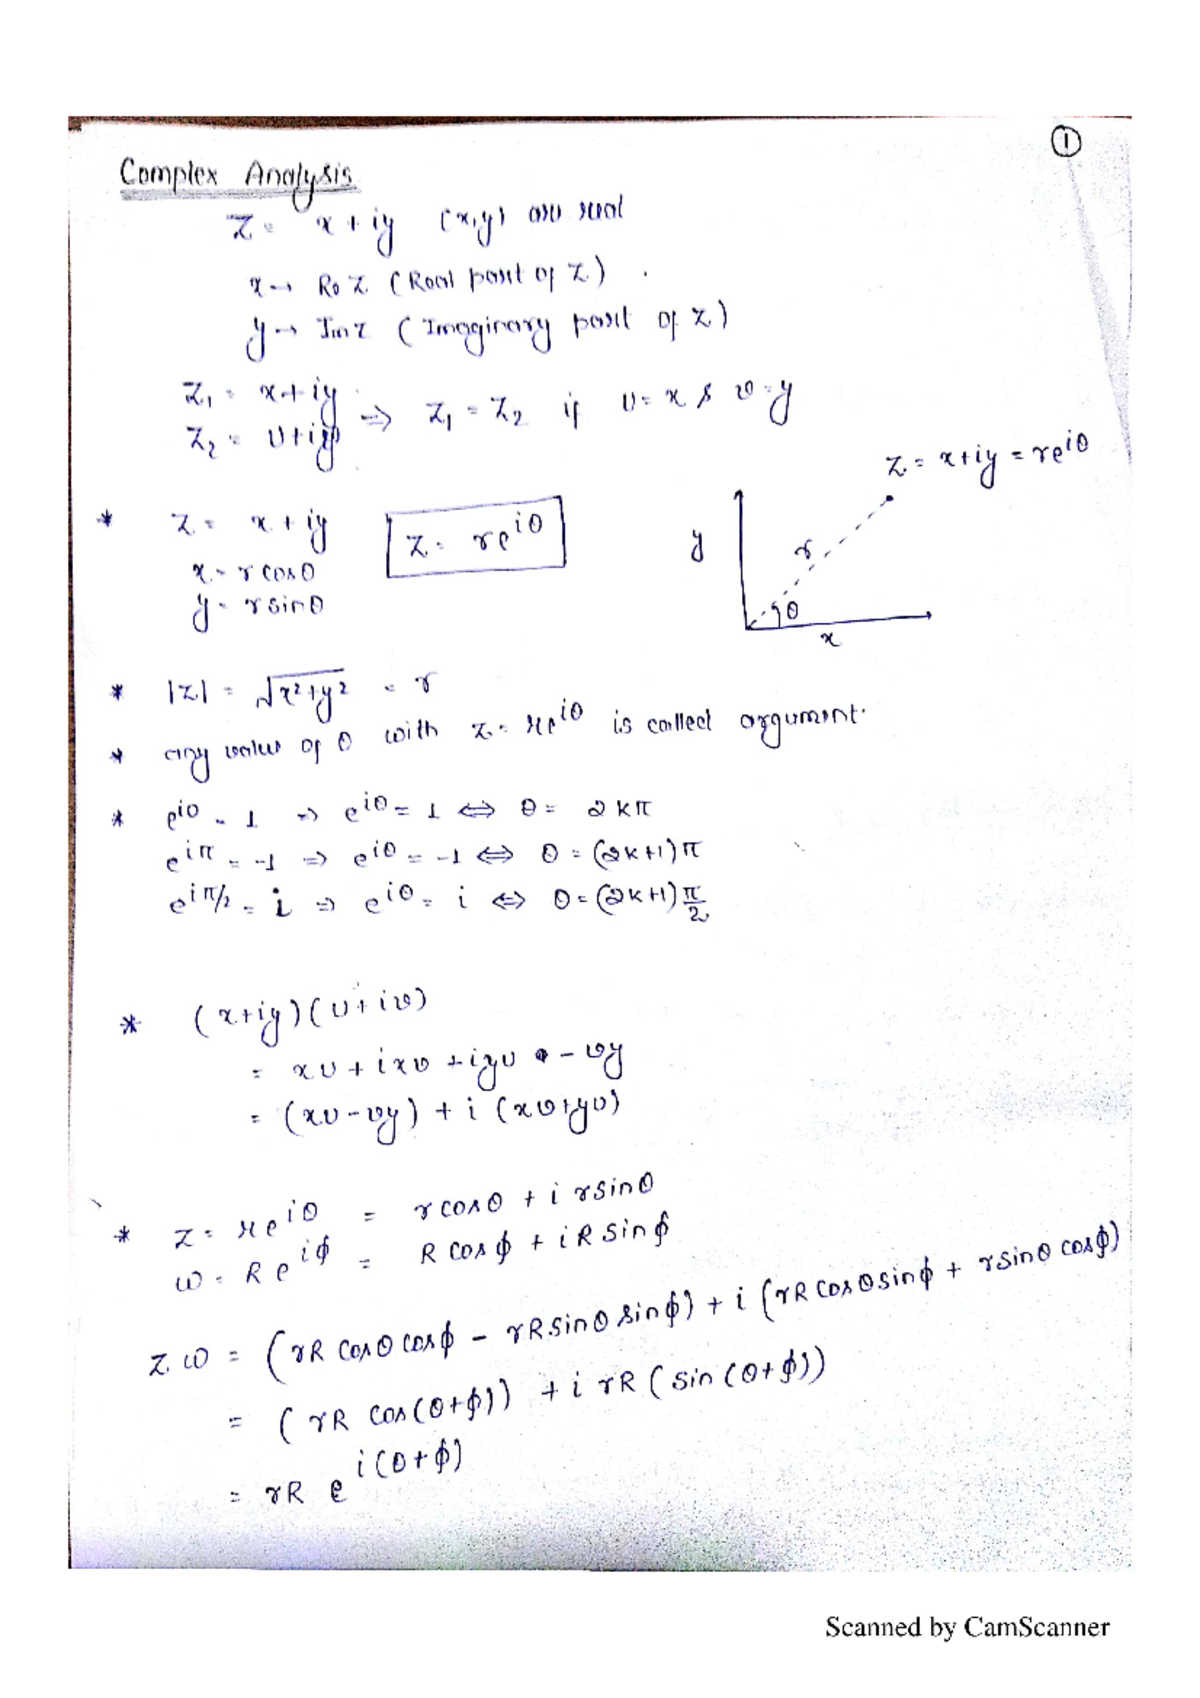 ①
Complex Analysis
z = x + iy (x,y) are real
x → Re z (Real part of z).
y → Im z (Imaginary part of z)
z₁ = x + iy
z₂ = u + iv
⇒ z₁ = z₂ if u = x & v = y
z = x+iy = re^{iθ}
* z = x + iy
x = r cosθ
y = r sinθ
z = re^{iθ}
y
r
θ
x
* |z| = √(x²+y²) = r
* any value of θ with z = re^{iθ} is called argument.
* e^{i0} = 1 ⇒ e^{iθ} = 1 ⇔ θ = 2kπ
e^{iπ} = -1 ⇒ e^{iθ} = -1 ⇔ θ = (2k+1)π
e^{iπ/2} = i ⇒ e^{iθ} = i ⇔ θ = (2k+1)π/2
* (x+iy)(u+iv)
= xu + ixv + iyu - vy
= (xu-vy) + i (xv+yu)
* z = re^{iθ} = r cosθ + i r sinθ
w = Re^{iϕ} = R cosϕ + iR sinϕ
z.w = (rR cosθ cosϕ - rR sinθ sinϕ) + i (rR cosθ sinϕ + r sinθ cosϕ)
= (rR cos(θ+ϕ)) + i rR (sin(θ+ϕ))
= rR e^{i(θ+ϕ)}
Scanned by CamScanner